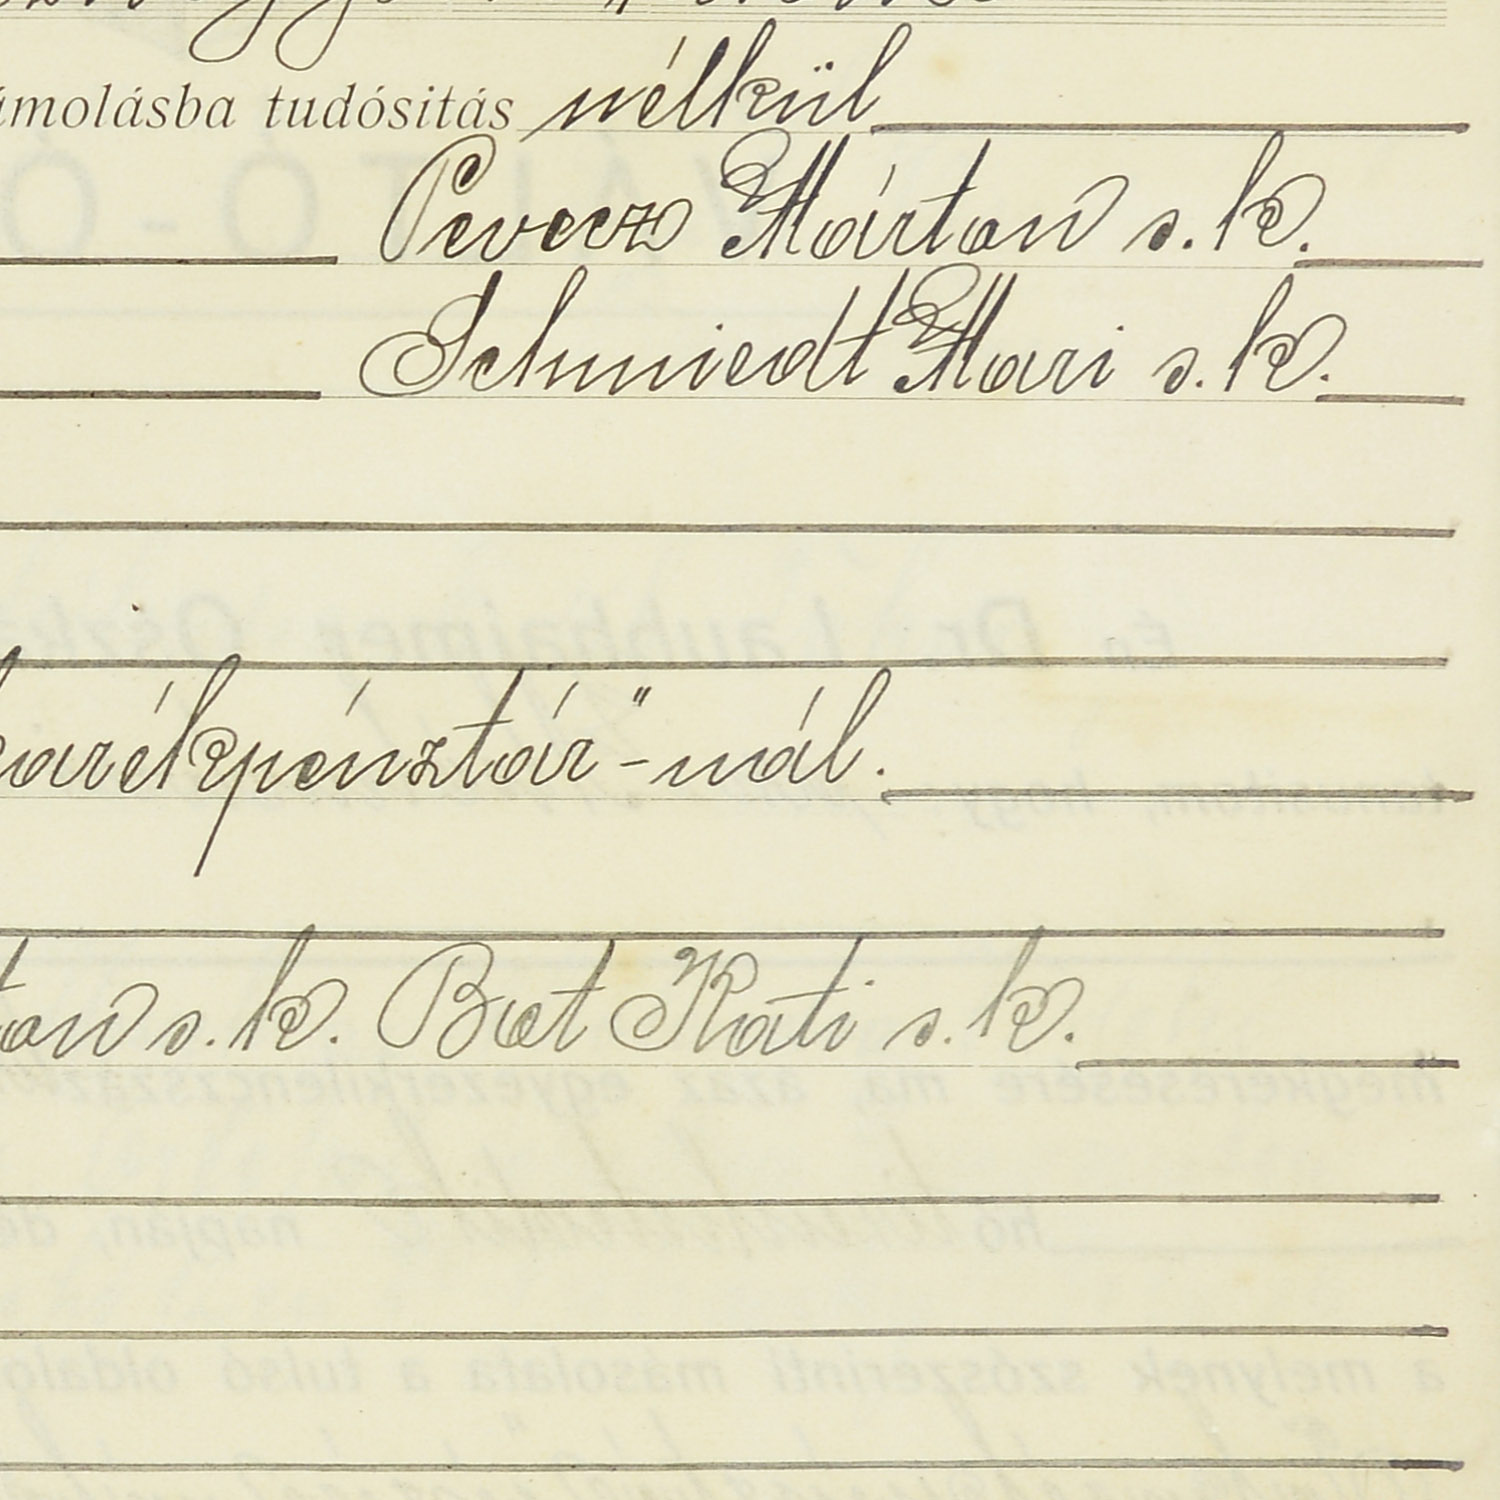 ámolásba tudósitás nélkül
Pevecz Márton s. k.
Schmiedt Mari s. k.
karékpénztár"-nál.
ton s. k. But Kati s. k.